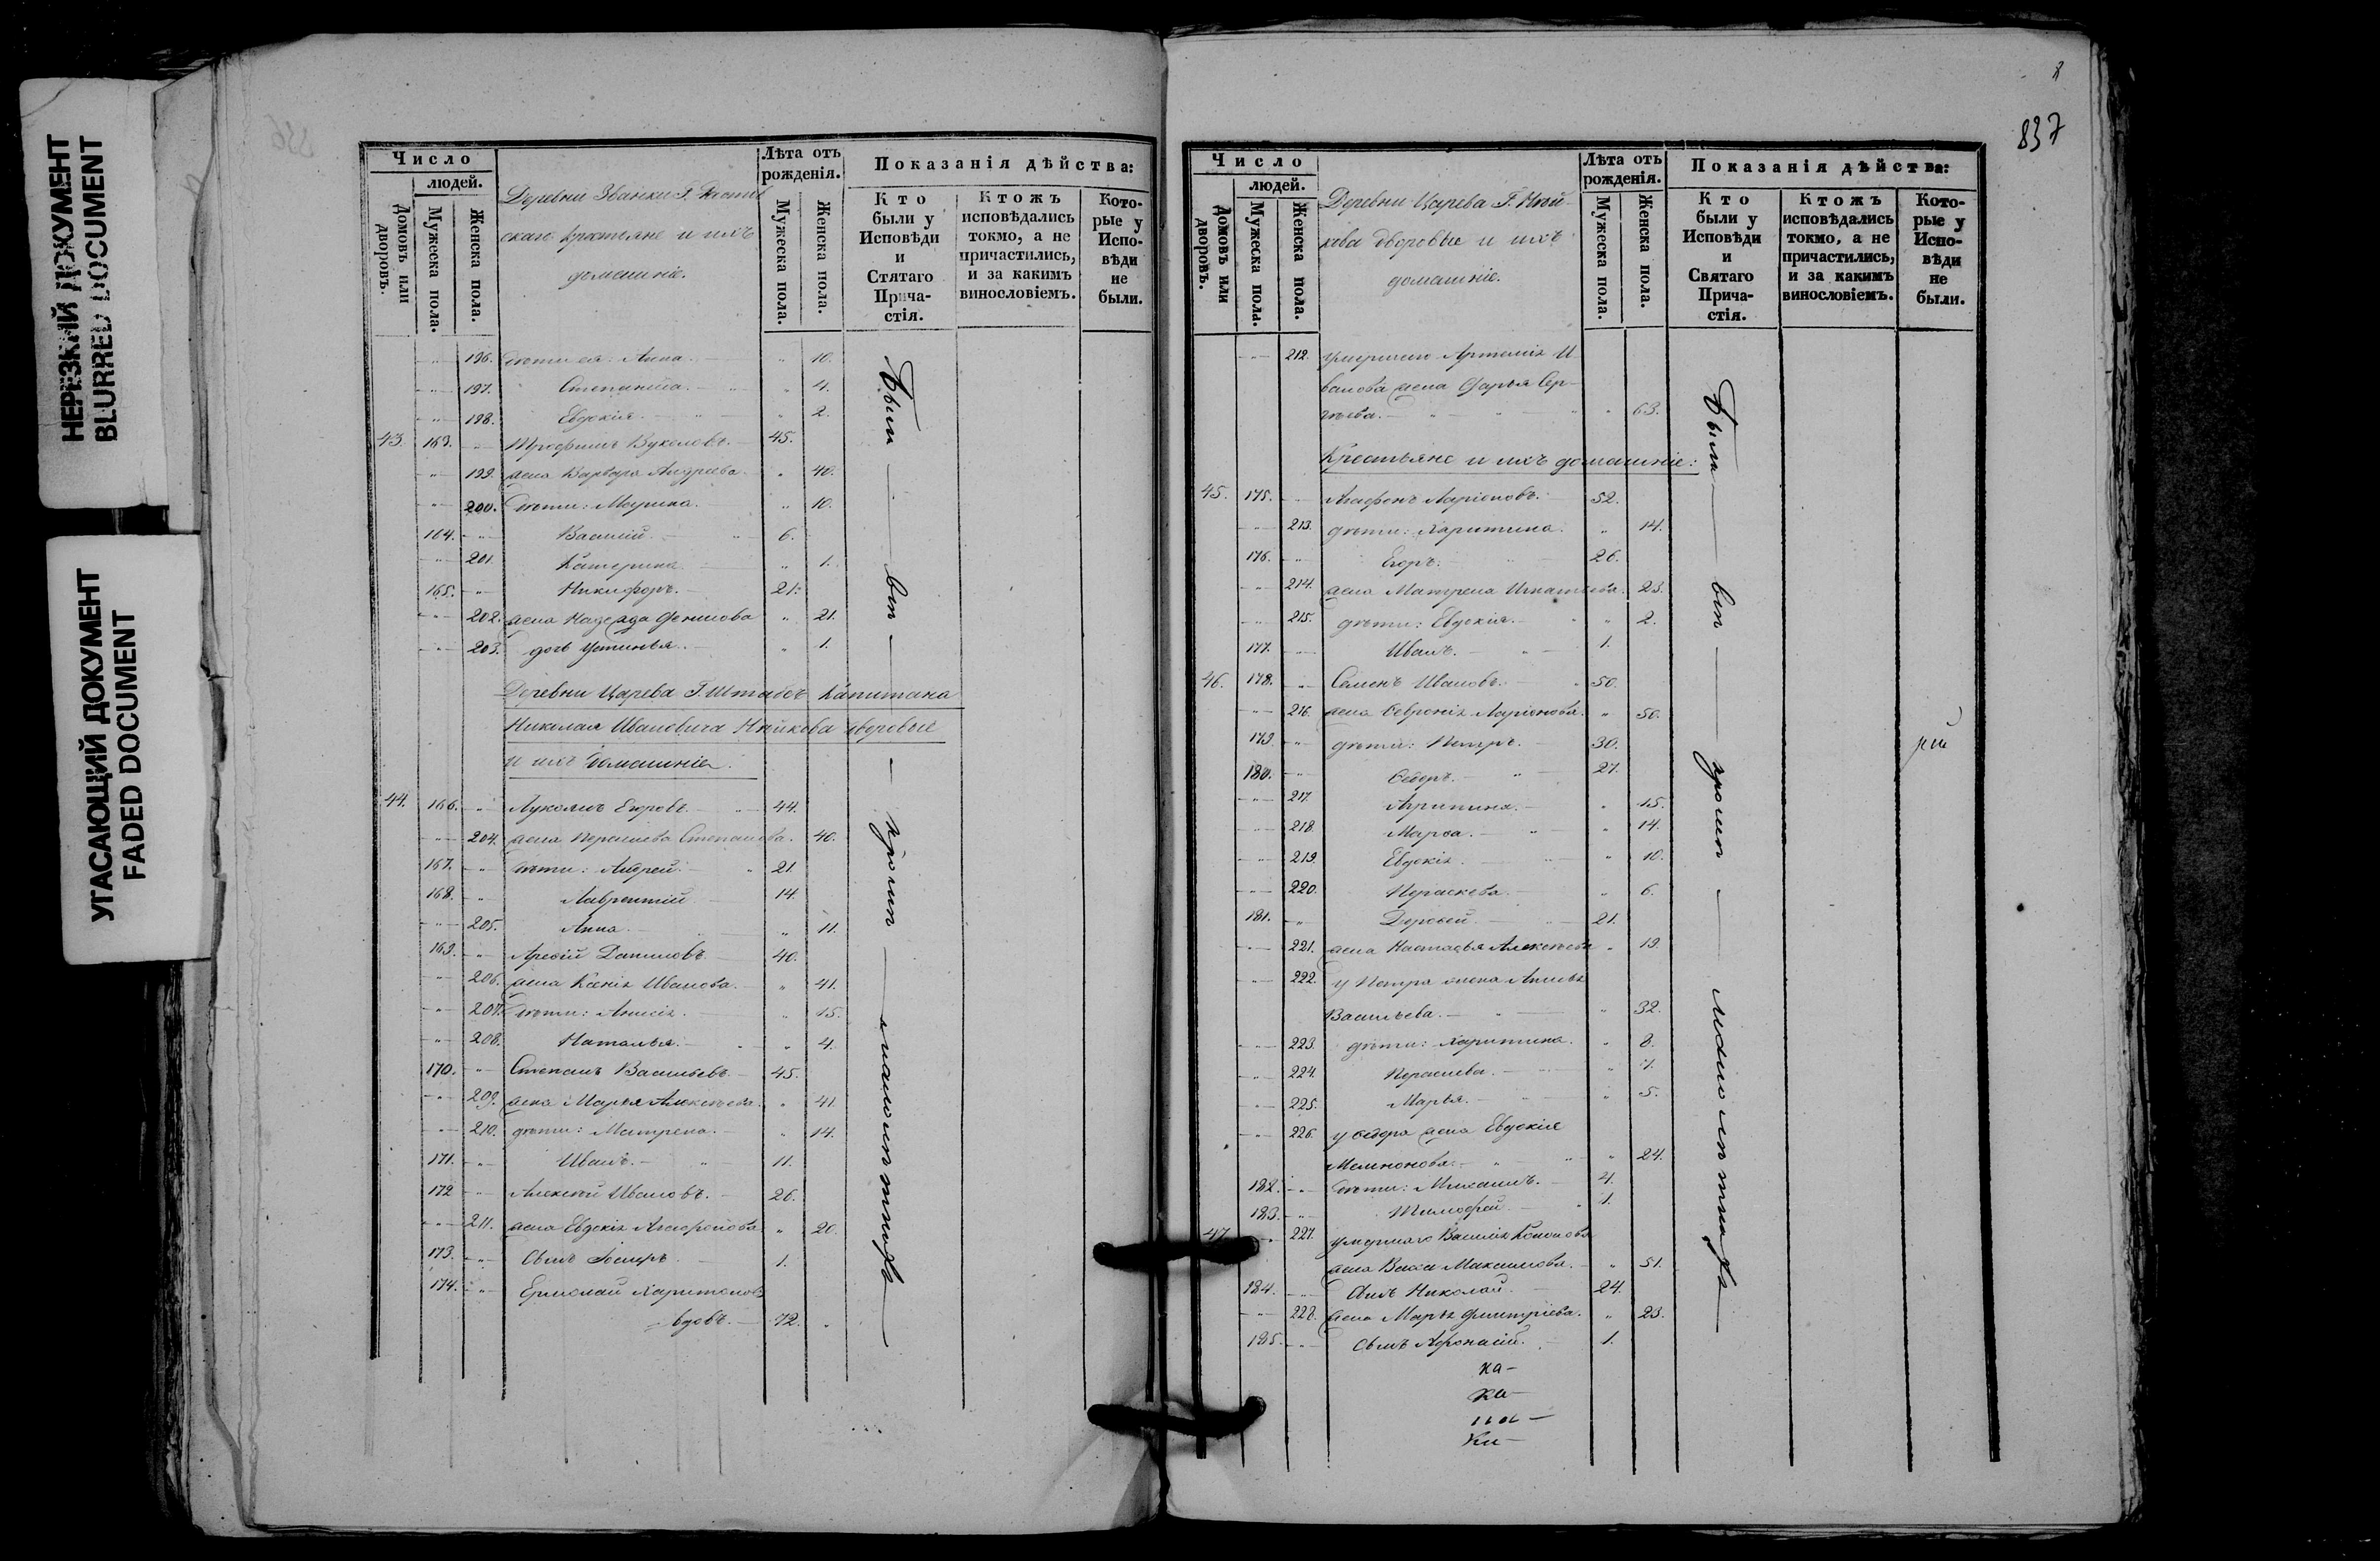 НЕРЕЗКИЙ ДОКУМЕНТ
BLURRED DOCUMENT
УГАСАЮЩИЙ ДОКУМЕНТ
FADED DOCUMENT
Число
людей.
Домовъ или дворовъ.
Мужеска пола.
Женска пола.
Деревни Званки Г.
скаго крестьяне и ихъ
домашніе.
Лѣта отъ рожденія.
Мужеска пола.
Женска пола.
Показанія дѣйства:
Кто были у Исповѣди и Стятаго Прича-стія.
Ктожъ исповѣдались токмо, а не причастились, и за какимъ винословіемъ.
Кото-рые у Испо-вѣди не были.
196. дѣти ея: Анна. 10.
197. Степанида. 4.
198. Евдокія. 2.
43. 163. Трофимъ Вуколовъ. 45.
199. жена Варвара Андреева. 40.
200. Дѣти: Марина. 10.
164. Василій. 6.
201. Катерина. 1.
165. Никифоръ. 21.
202. жена Надежда Денисова 21.
203. дочь Устинья. 1.
Деревни Царева Г. Штабсъ Капитана
Николая Ивановича дворовые
и ихъ домашніе.
44. 166. Егоровъ. 44.
204. жена Степанова. 40.
167. дѣти: Андрей. 21.
168. Лаврентій 14.
205. Анна. 11.
169. Даниловъ 40.
206. жена Ксенія Иванова. 41.
207. Дѣти: Анисія. 15.
208. Наталья. 4.
170. Степанъ Васильевъ. 45.
209. жена Марья Алексѣева. 41.
210. дѣти: Матрена. 14.
171. Иванъ. 11.
172 Алексѣй Ивановъ. 26.
211. жена Евдокія Агафонова 20.
173. Сынъ 1.
174. Ермолай Харитоновъ
вдовъ. 72.
Были
вси
малолѣтныхъ
837
Число
людей.
Домовъ или дворовъ.
Мужеска пола.
Женска пола.
Деревни Царева Г.
кова дворовые и ихъ
домашніе.
Лѣта отъ рожденія.
Мужеска пола.
Женска пола.
Показанія дѣйства:
Кто были у Исповѣди и Святаго Прича-стія.
Ктожъ исповѣдались токмо, а не причастились, и за какимъ винословіемъ.
Кото-рые у Испо-вѣди не были.
212. умершаго Артемія И
ванова жена Дарья Сер-
гѣева. 63.
Крестьяне и ихъ домашніе:
45. 175. Агафонъ Ларіоновъ. 52.
213. дѣти: Харитина. 14.
176. Егоръ. 26.
214. жена Матрена Игнатьева. 23.
215. дѣти: Евдокія. 2.
177. Иванъ. 1.
46. 178. Семенъ Ивановъ. 50.
216. жена Ѳевронія Ларіонова. 50.
179. дѣти: Петръ. 30.
180. Ѳедоръ. 27.
217. Агрипина. 15.
218. Марѳа. 14.
219. Евдокія. 10.
220. Параскева. 6.
181. Дороѳей. 21.
221. жена Настасья Алексѣева 19.
222. у Петра жена
Васильева. 32.
223. дѣти: Харитина. 8.
224. 7.
225. Марья. 5.
226. у Ѳедора жена Евдокія
24.
182. Дѣти: Михаилъ. 4.
183. Тимофей. 1.
47. 227. умершаго Василія
жена Васса Максимова. 51.
184. Сынъ Николай. 24.
228. жена Марья Дмитріева. 23.
185. Сынъ Афонасій. 1.
ка-
Были
вси
малолѣтныхъ